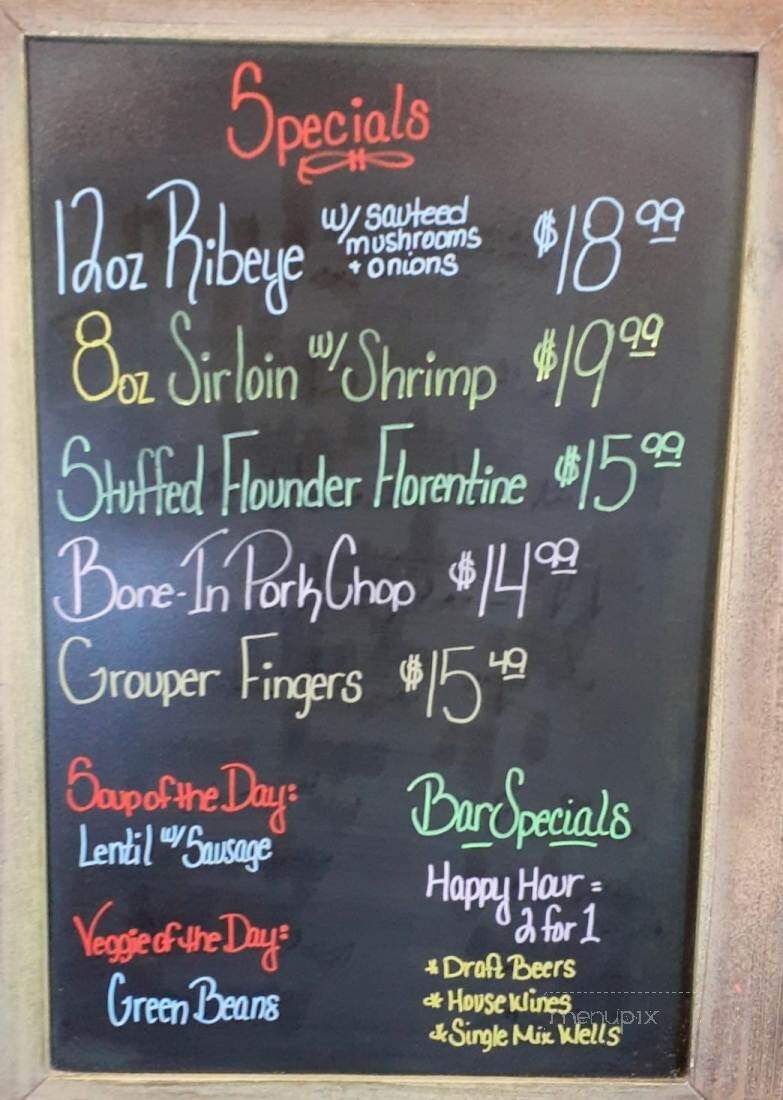 Specials
12oz Ribeye w/ sauteed mushrooms + onions $18.99
8oz Sirloin w/ Shrimp $19.99
Stuffed Flounder Florentine $15.99
Bone-In Pork Chop $14.99
Grouper Fingers $15.49
Soup of the Day:
Lentil w/ Sausage
Veggie of the Day:
Green Beans
Bar Specials
Happy Hour =
2 for 1
* Draft Beers
* House Wines
* Single Mix Wells
menupix